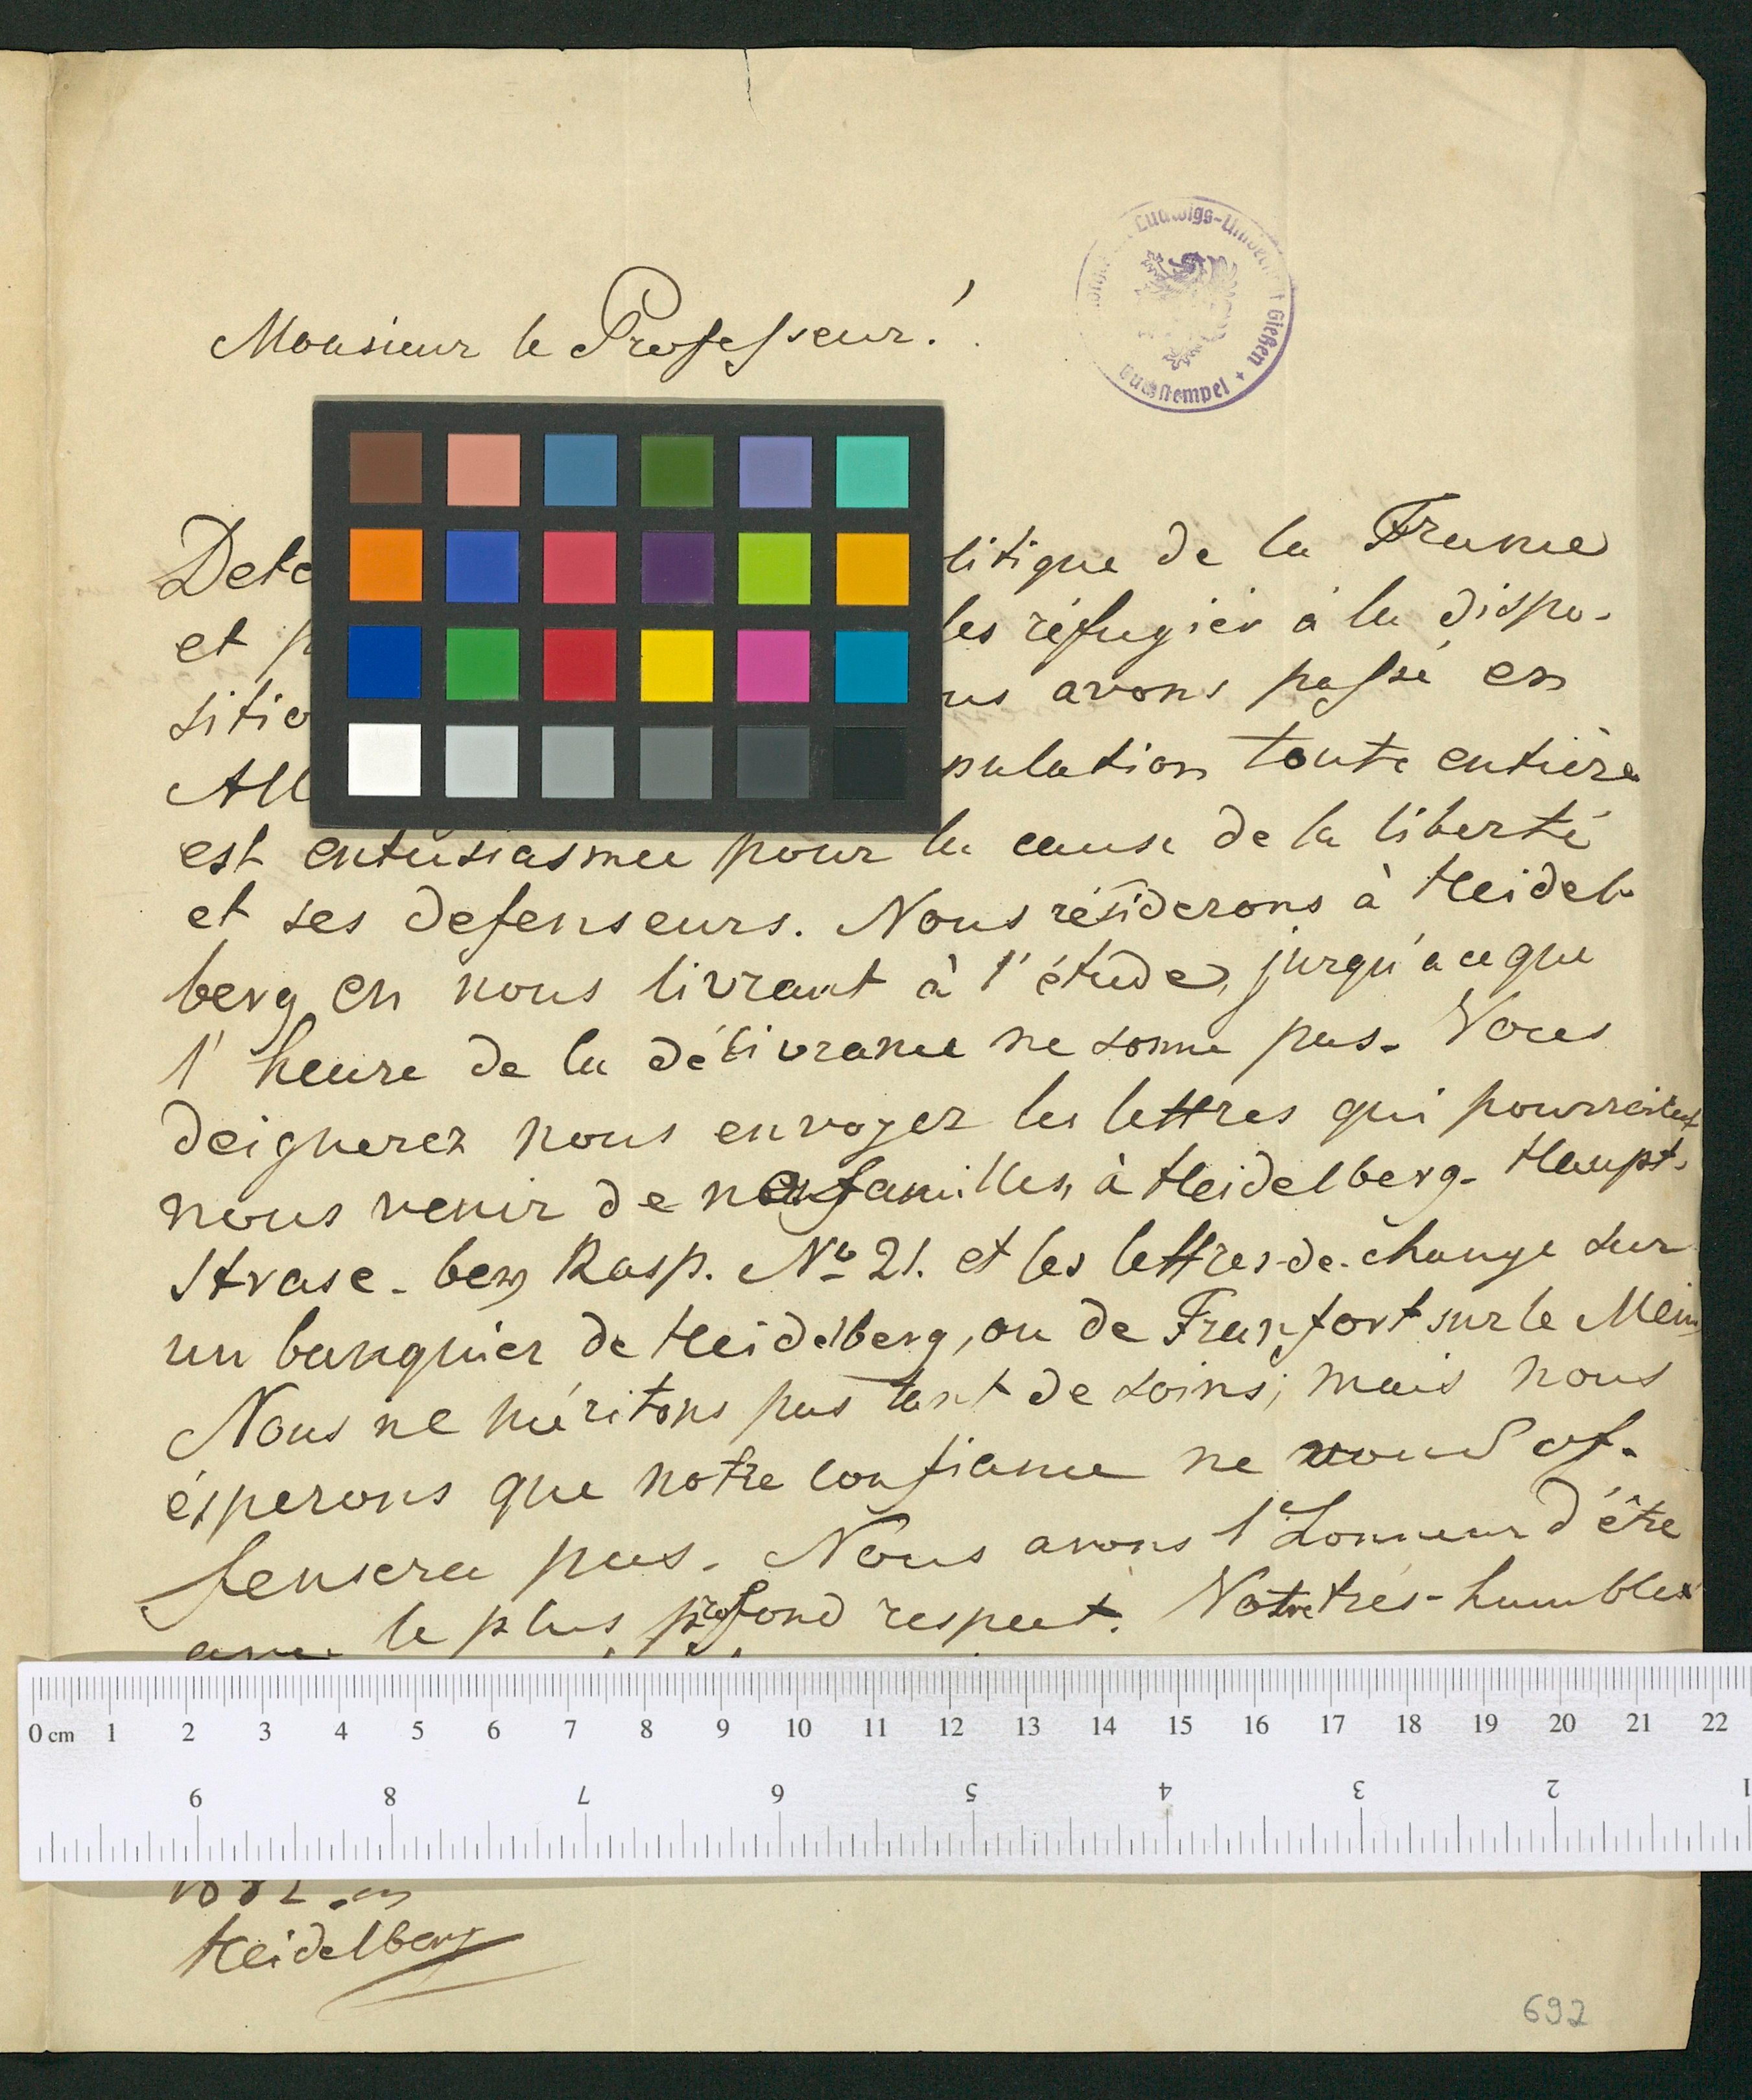 Monsieur le Professeur!
Ludwigs-Universität Gießen
Buchstempel
Dete litique de la France
et p les réfugiés à la dispo-
sitio us avons passé en
All pulation toute entière
est entusiasmee pour la cause de la liberté
et ses defenseurs. Nous résiderons à Heidel-
berg en nous livrant à l'étude, jusqu'a ce que
l'heure de la délivrance ne sonne pas. Vous
deignerez nous envoyer les lettres qui pourraient
nous venir de nos familles, à Heidelberg. Haupt-
Strase. bey Rasp. No 21. et les lettres-de-change sur
un banquier de Heidelberg, ou de Franfort sur le Mein
Nous ne méritons pas tant de soins; mais nous
ésperons que notre confiance ne vous of-
fensera pas. Nous avons l'honneur d'être
avec le plus profond respect. Votre très-humbles
0 cm 1 2 3 4 5 6 7 8 9 10 11 12 13 14 15 16 17 18 19 20 21 22
9 8 7 6 5 4 3 2 1
1832. en
Heidelberg
692